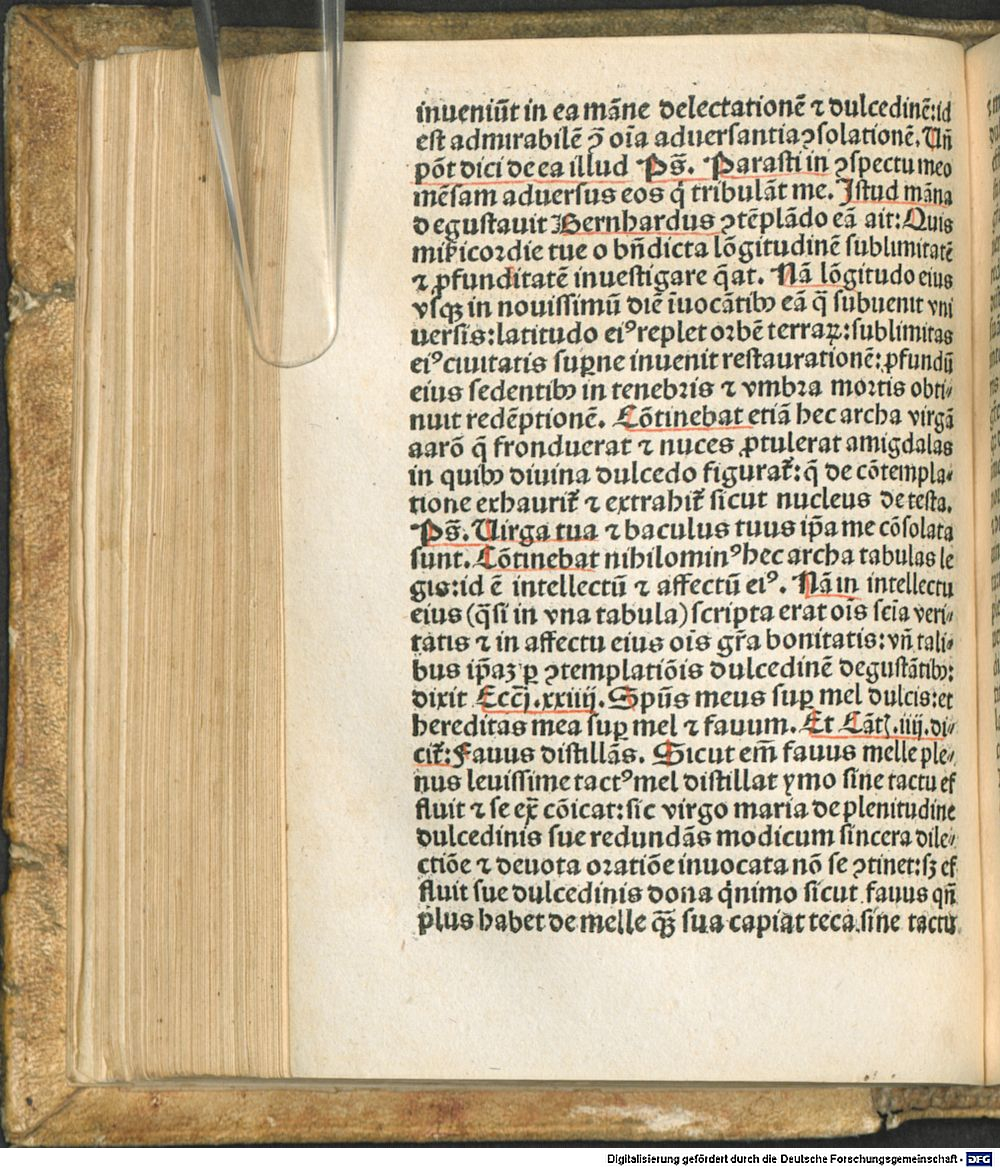 inueniūt in ea māne delectationē ⁊ dulcedinē:id
est admirabilē ꝯ̄ oīa aduersantia ꝯsolationē. Vn̄
pōt dici de ea illud Ps̄. Parasti in ꝯspectu meo
mēsam aduersus eos q̇ tribulāt me. Istud māna
degustauit Bernhardus ꝯtēplādo eā ait: Quis
mīẜicordie tue o bn̄dicta lōgitudinē sublimitatē
⁊ ꝓfunditatē inuestigare q̄at. Nā lōgitudo eius
vsqꝫ in nouissimū diē īuocātibꝰ eā q̄ subuenit vni
uersis: latitudo eiꝰ replet orbē terraꝝ: sublimitas
eiꝰ ciuitatis suꝑne inuenit restaurationē: ꝓfundū
eius sedentibꝰ in tenebris ⁊ vmbra mortis obti⸗
nuit redēptionē. Cōtinebat etiā hec archa virgā
aarō q̄ fronduerat ⁊ nuces ꝓtulerat amigdalas
in quibꝰ diuina dulcedo figurat᷑: q̄ de cōtempla⸗
tione exhaurit᷑ ⁊ extrahit᷑ sicut nucleus de testa.
Ps̄. Virga tua ⁊ baculus tuus ip̄a me cōsolata
sunt. Cōtinebat nihilominꝰ hec archa tabulas le
gis: id ē intellectū ⁊ affectū eiꝰ. Nā in intellectu
eius (q̄si in vna tabula) scripta erat oīs scīa veri⸗
tatis ⁊ in affectu eius oīs gr̄a bonitatis: vn̄ tali⸗
bus ip̄aꝫ ꝑ ꝯtemplatiōis dulcedinē degustātibꝰ:
dixit Ecc̄i. xxiiij. Spūs meus suꝑ mel dulcis: et
hereditas mea suꝑ mel ⁊ fauum. Et Cāt. iiij. di⸗
cit᷑: Fauus distillās. Sicut em̄ fauus melle ple⸗
nus leuissime tactꝰ mel distillat ymo sine tactu ef
fluit ⁊ se ex̄ cōicat: sic virgo maria de plenitudine
dulcedinis sue redundās modicum sincera dile⸗
ctiōe ⁊ deuota oratiōe inuocata nō se ꝯtinet: sꝫ ef
fluit sue dulcedinis dona q̇nimo sicut fauus qn̄
plus habet de melle q̄ꝫ sua capiat teca. sine tactu
Digitalisierung gefördert durch die Deutsche Forschungsgemeinschaft - DFG